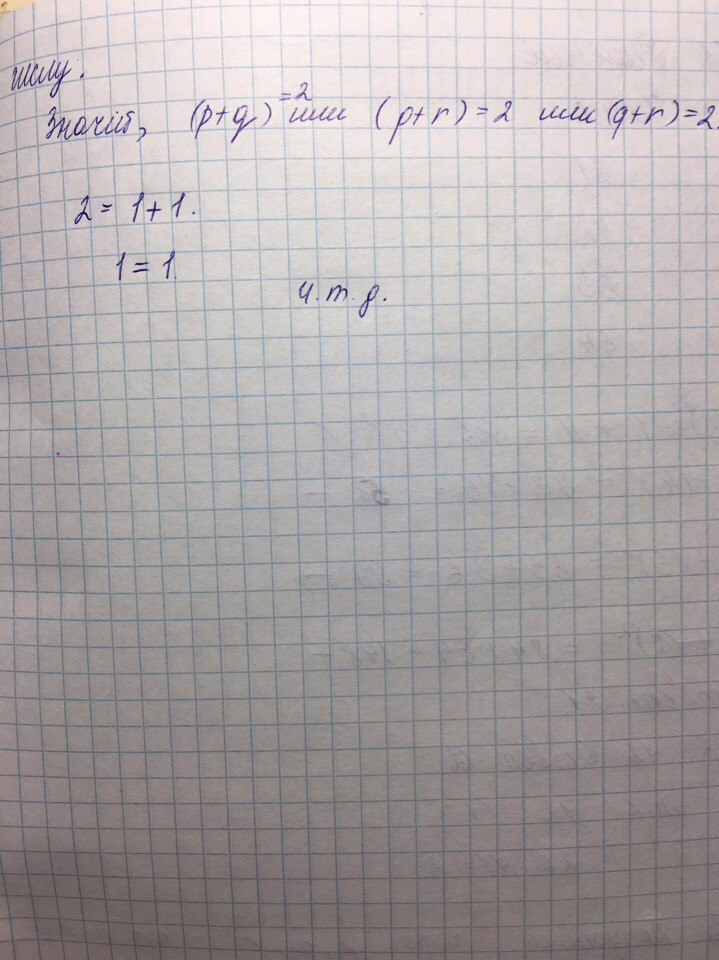 числу.
Значит, (p+q)=2 или (p+r)=2 или (q+r)=2.
2 = 1+1.
1 = 1.
ч.т.д.